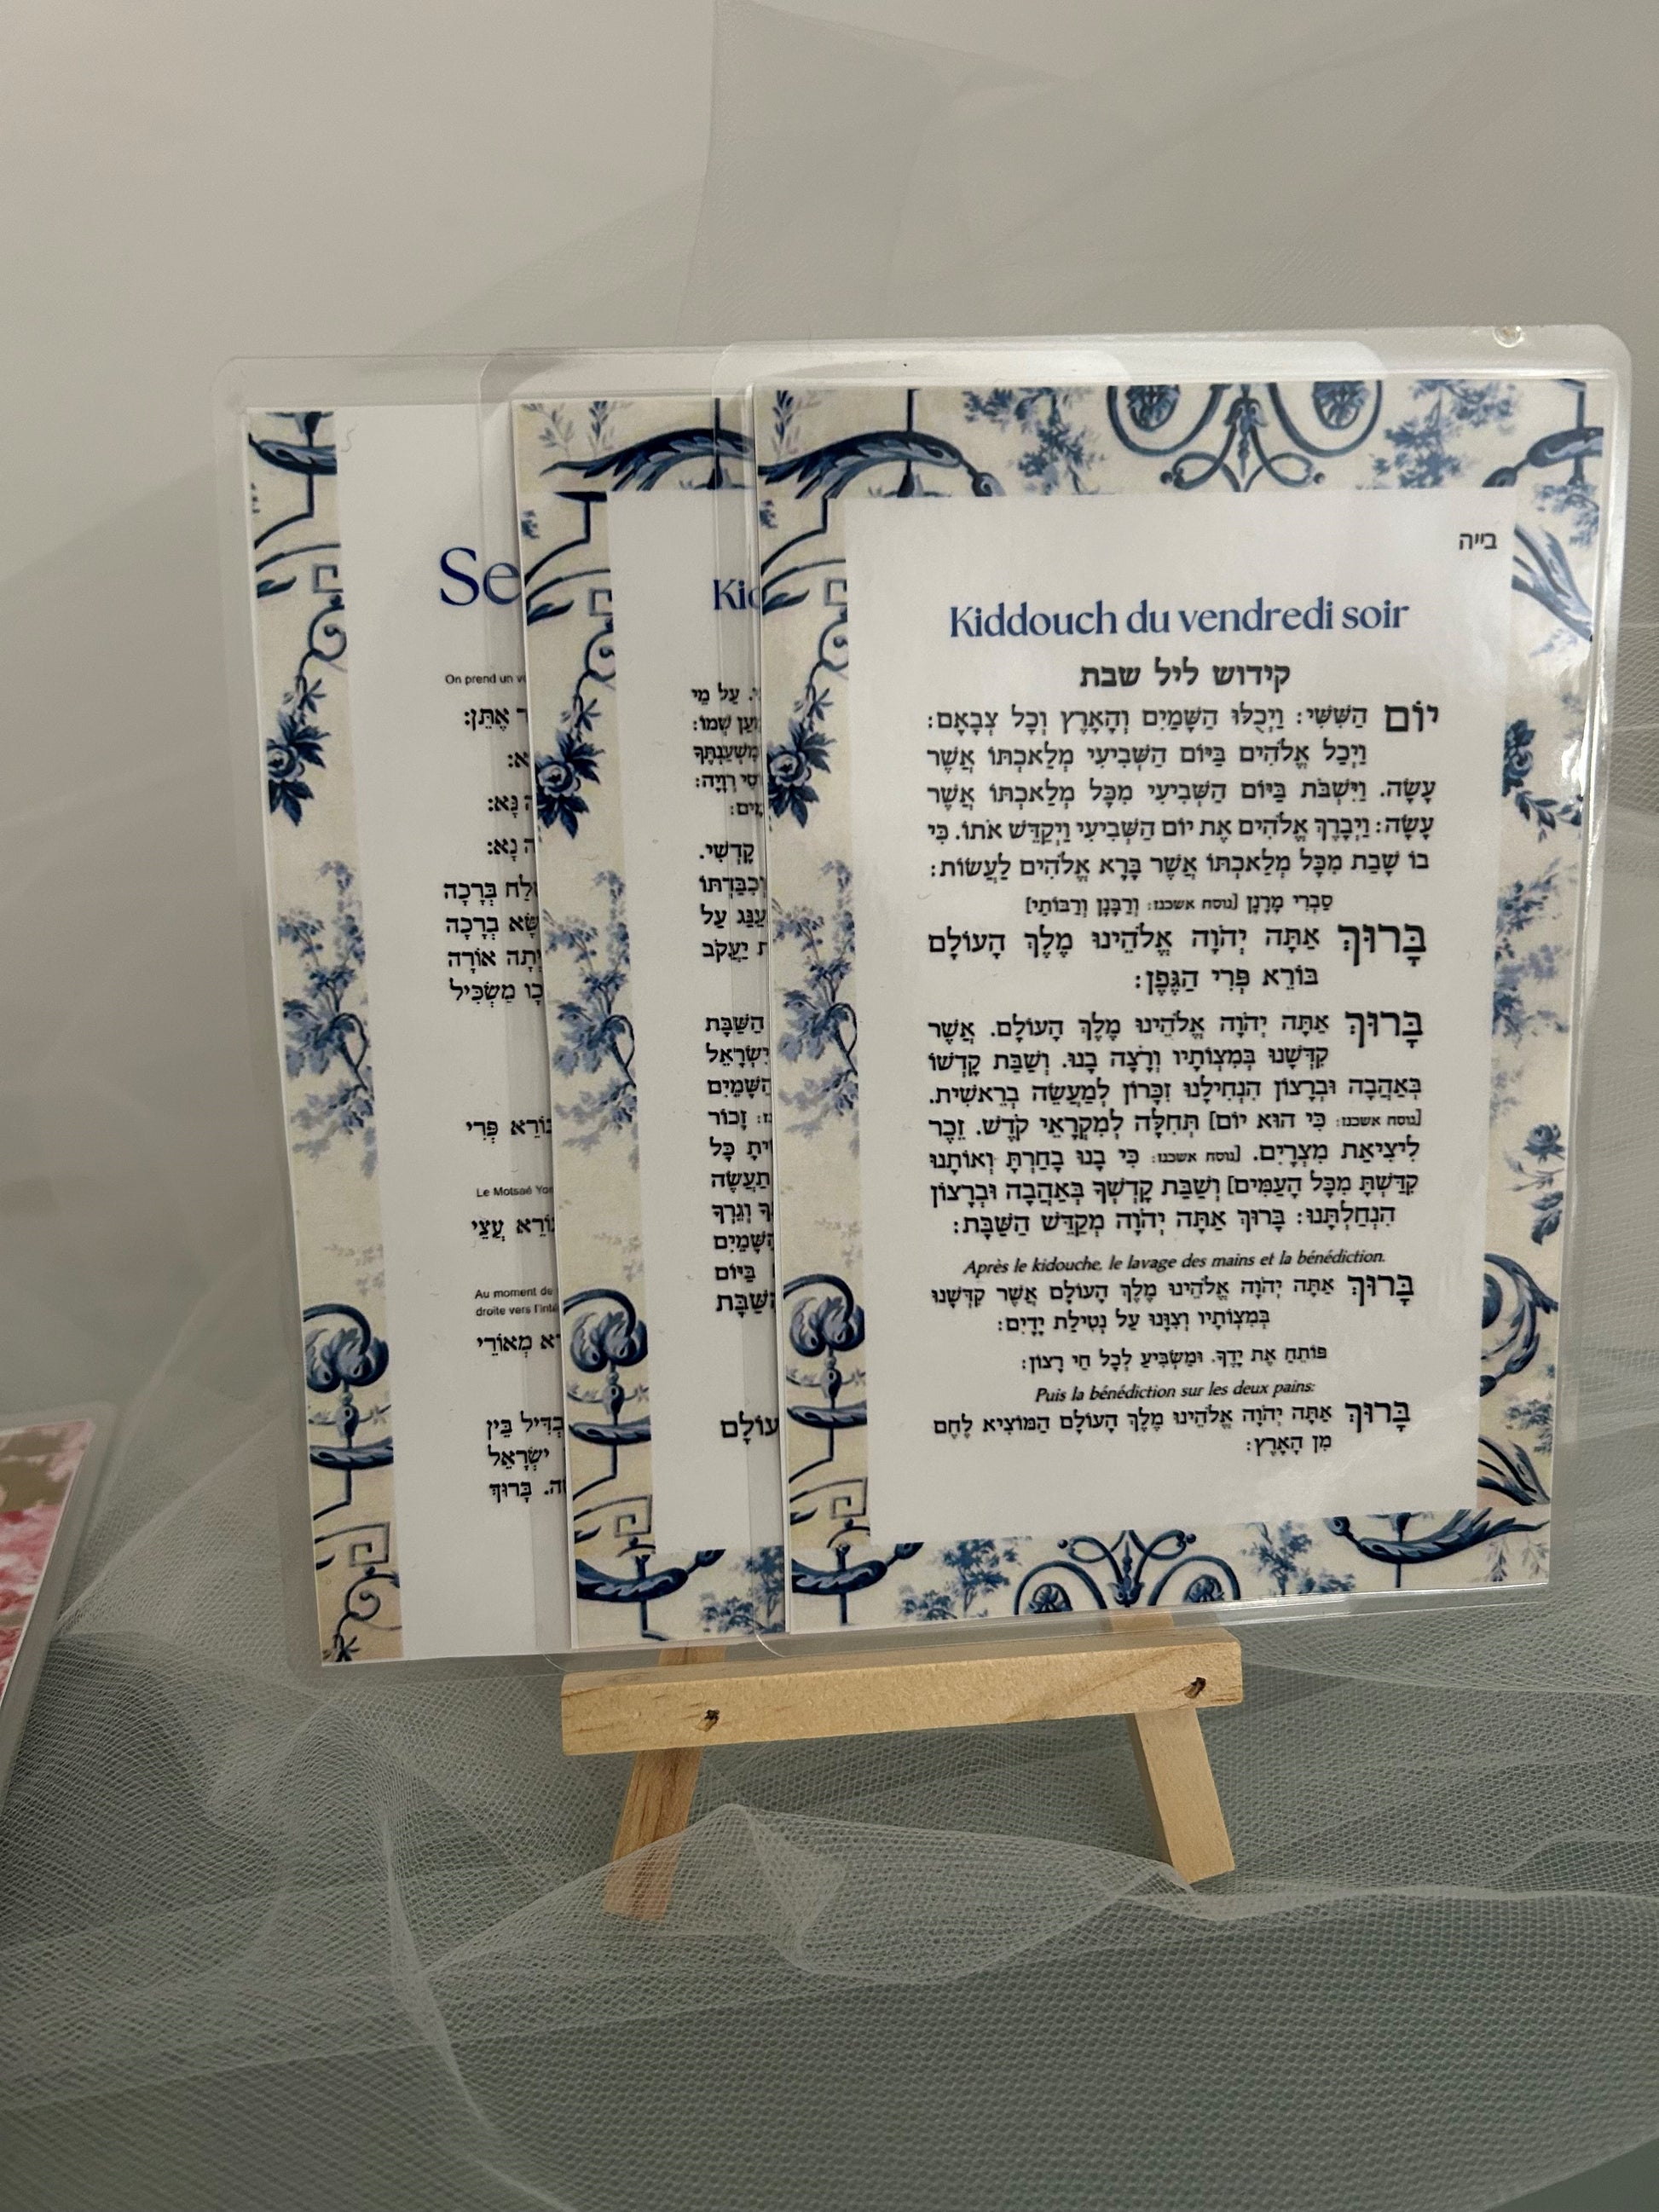 בייה
Kiddouch du vendredi soir
קידוש ליל שבת
יוֹם הַשִּׁשִּׁי: וַיְכֻלּוּ הַשָּׁמַיִם וְהָאָרֶץ וְכָל צְבָאָם:
וַיְכַל אֱלֹהִים בַּיּוֹם הַשְּׁבִיעִי מְלַאכְתּוֹ אֲשֶׁר
עָשָׂה. וַיִּשְׁבֹּת בַּיּוֹם הַשְּׁבִיעִי מִכָּל מְלַאכְתּוֹ אֲשֶׁר
עָשָׂה: וַיְבָרֶךְ אֱלֹהִים אֶת יוֹם הַשְּׁבִיעִי וַיְקַדֵּשׁ אֹתוֹ. כִּי
בוֹ שָׁבַת מִכָּל מְלַאכְתּוֹ אֲשֶׁר בָּרָא אֱלֹהִים לַעֲשׂוֹת:
סַבְרִי מָרָנָן [נוסח אשכנז: וְרַבָּנָן וְרַבּוֹתַי]
בָּרוּךְ אַתָּה יְהֹוָה אֱלֹהֵינוּ מֶלֶךְ הָעוֹלָם
בּוֹרֵא פְּרִי הַגֶּפֶן:
בָּרוּךְ אַתָּה יְהֹוָה אֱלֹהֵינוּ מֶלֶךְ הָעוֹלָם. אֲשֶׁר
קִדְּשָׁנוּ בְּמִצְוֹתָיו וְרָצָה בָנוּ. וְשַׁבַּת קָדְשׁוֹ
בְּאַהֲבָה וּבְרָצוֹן הִנְחִילָנוּ זִכָּרוֹן לְמַעֲשֵׂה בְרֵאשִׁית.
[נוסח אשכנז: כִּי הוּא יוֹם] תְּחִלָּה לְמִקְרָאֵי קֹדֶשׁ. זֵכֶר
לִיצִיאַת מִצְרָיִם. [נוסח אשכנז: כִּי בָנוּ בָחַרְתָּ וְאוֹתָנוּ
קִדַּשְׁתָּ מִכָּל הָעַמִּים] וְשַׁבַּת קָדְשְׁךָ בְּאַהֲבָה וּבְרָצוֹן
הִנְחַלְתָּנוּ: בָּרוּךְ אַתָּה יְהֹוָה מְקַדֵּשׁ הַשַּׁבָּת:
Après le kidouche, le lavage des mains et la bénédiction.
בָּרוּךְ אַתָּה יְהֹוָה אֱלֹהֵינוּ מֶלֶךְ הָעוֹלָם אֲשֶׁר קִדְּשָׁנוּ
בְּמִצְוֹתָיו וְצִוָּנוּ עַל נְטִילַת יָדָיִם:
פּוֹתֵחַ אֶת יָדֶךָ. וּמַשְׂבִּיעַ לְכָל חַי רָצוֹן:
Puis la bénédiction sur les deux pains:
בָּרוּךְ אַתָּה יְהֹוָה אֱלֹהֵינוּ מֶלֶךְ הָעוֹלָם הַמּוֹצִיא לֶחֶם
מִן הָאָרֶץ:
Kid
עַל מֵי
שְׁמוֹ:
רְוָיָה:
קָדְשִׁי.
וְכִבַּדְתּוֹ
עַל
יַעֲקֹב
הַשַּׁבָּת
יִשְׂרָאֵל
הַשָּׁמַיִם
זָכוֹר
כָּל
תַעֲשֶׂה
וְגֵרְךָ
הַשָּׁמַיִם
בַּיּוֹם
הַשַּׁבָּת
Se
On prend un
אֶתֵּן:
נָּא:
נָא:
בְּרָכָה
בְרָכָה
אוֹרָה
מַשְׂכִּיל
פְּרִי
Le Motsaé
עֲצֵי
Au moment de
droite vers
מְאוֹרֵי
בֵּין
יִשְׂרָאֵל
בָּרוּךְ